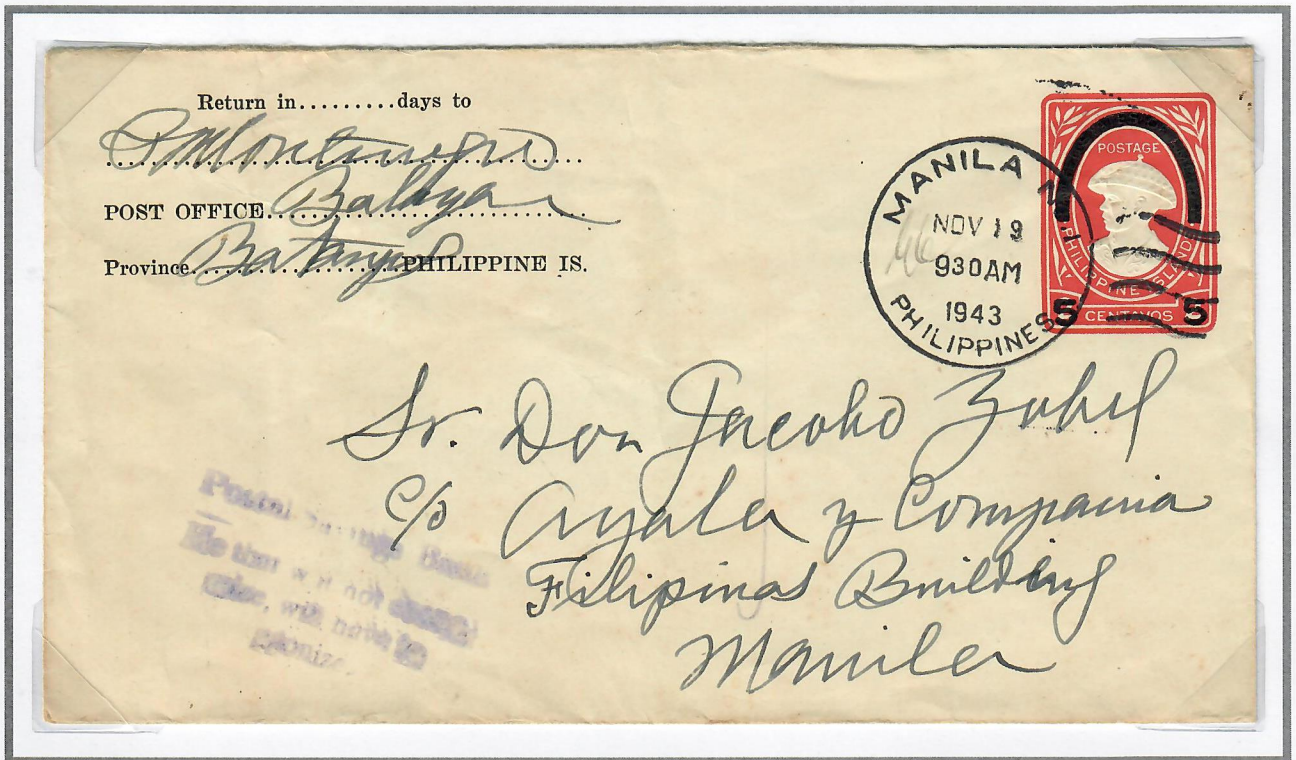 Return in.........days to
P Montenegro
POST OFFICE Balayan
Province Batangas PHILIPPINE IS.
MANILA
NOV 19
930 AM
1943
PHILIPPINES
POSTAGE
PHILIPPINE ISLANDS
5 CENTAVOS 5
Sr. Don Jacobo Zobel
c/o Ayala y Compania
Filipinas Building
Manila
Postal Savings Bank
He that will not
, will have